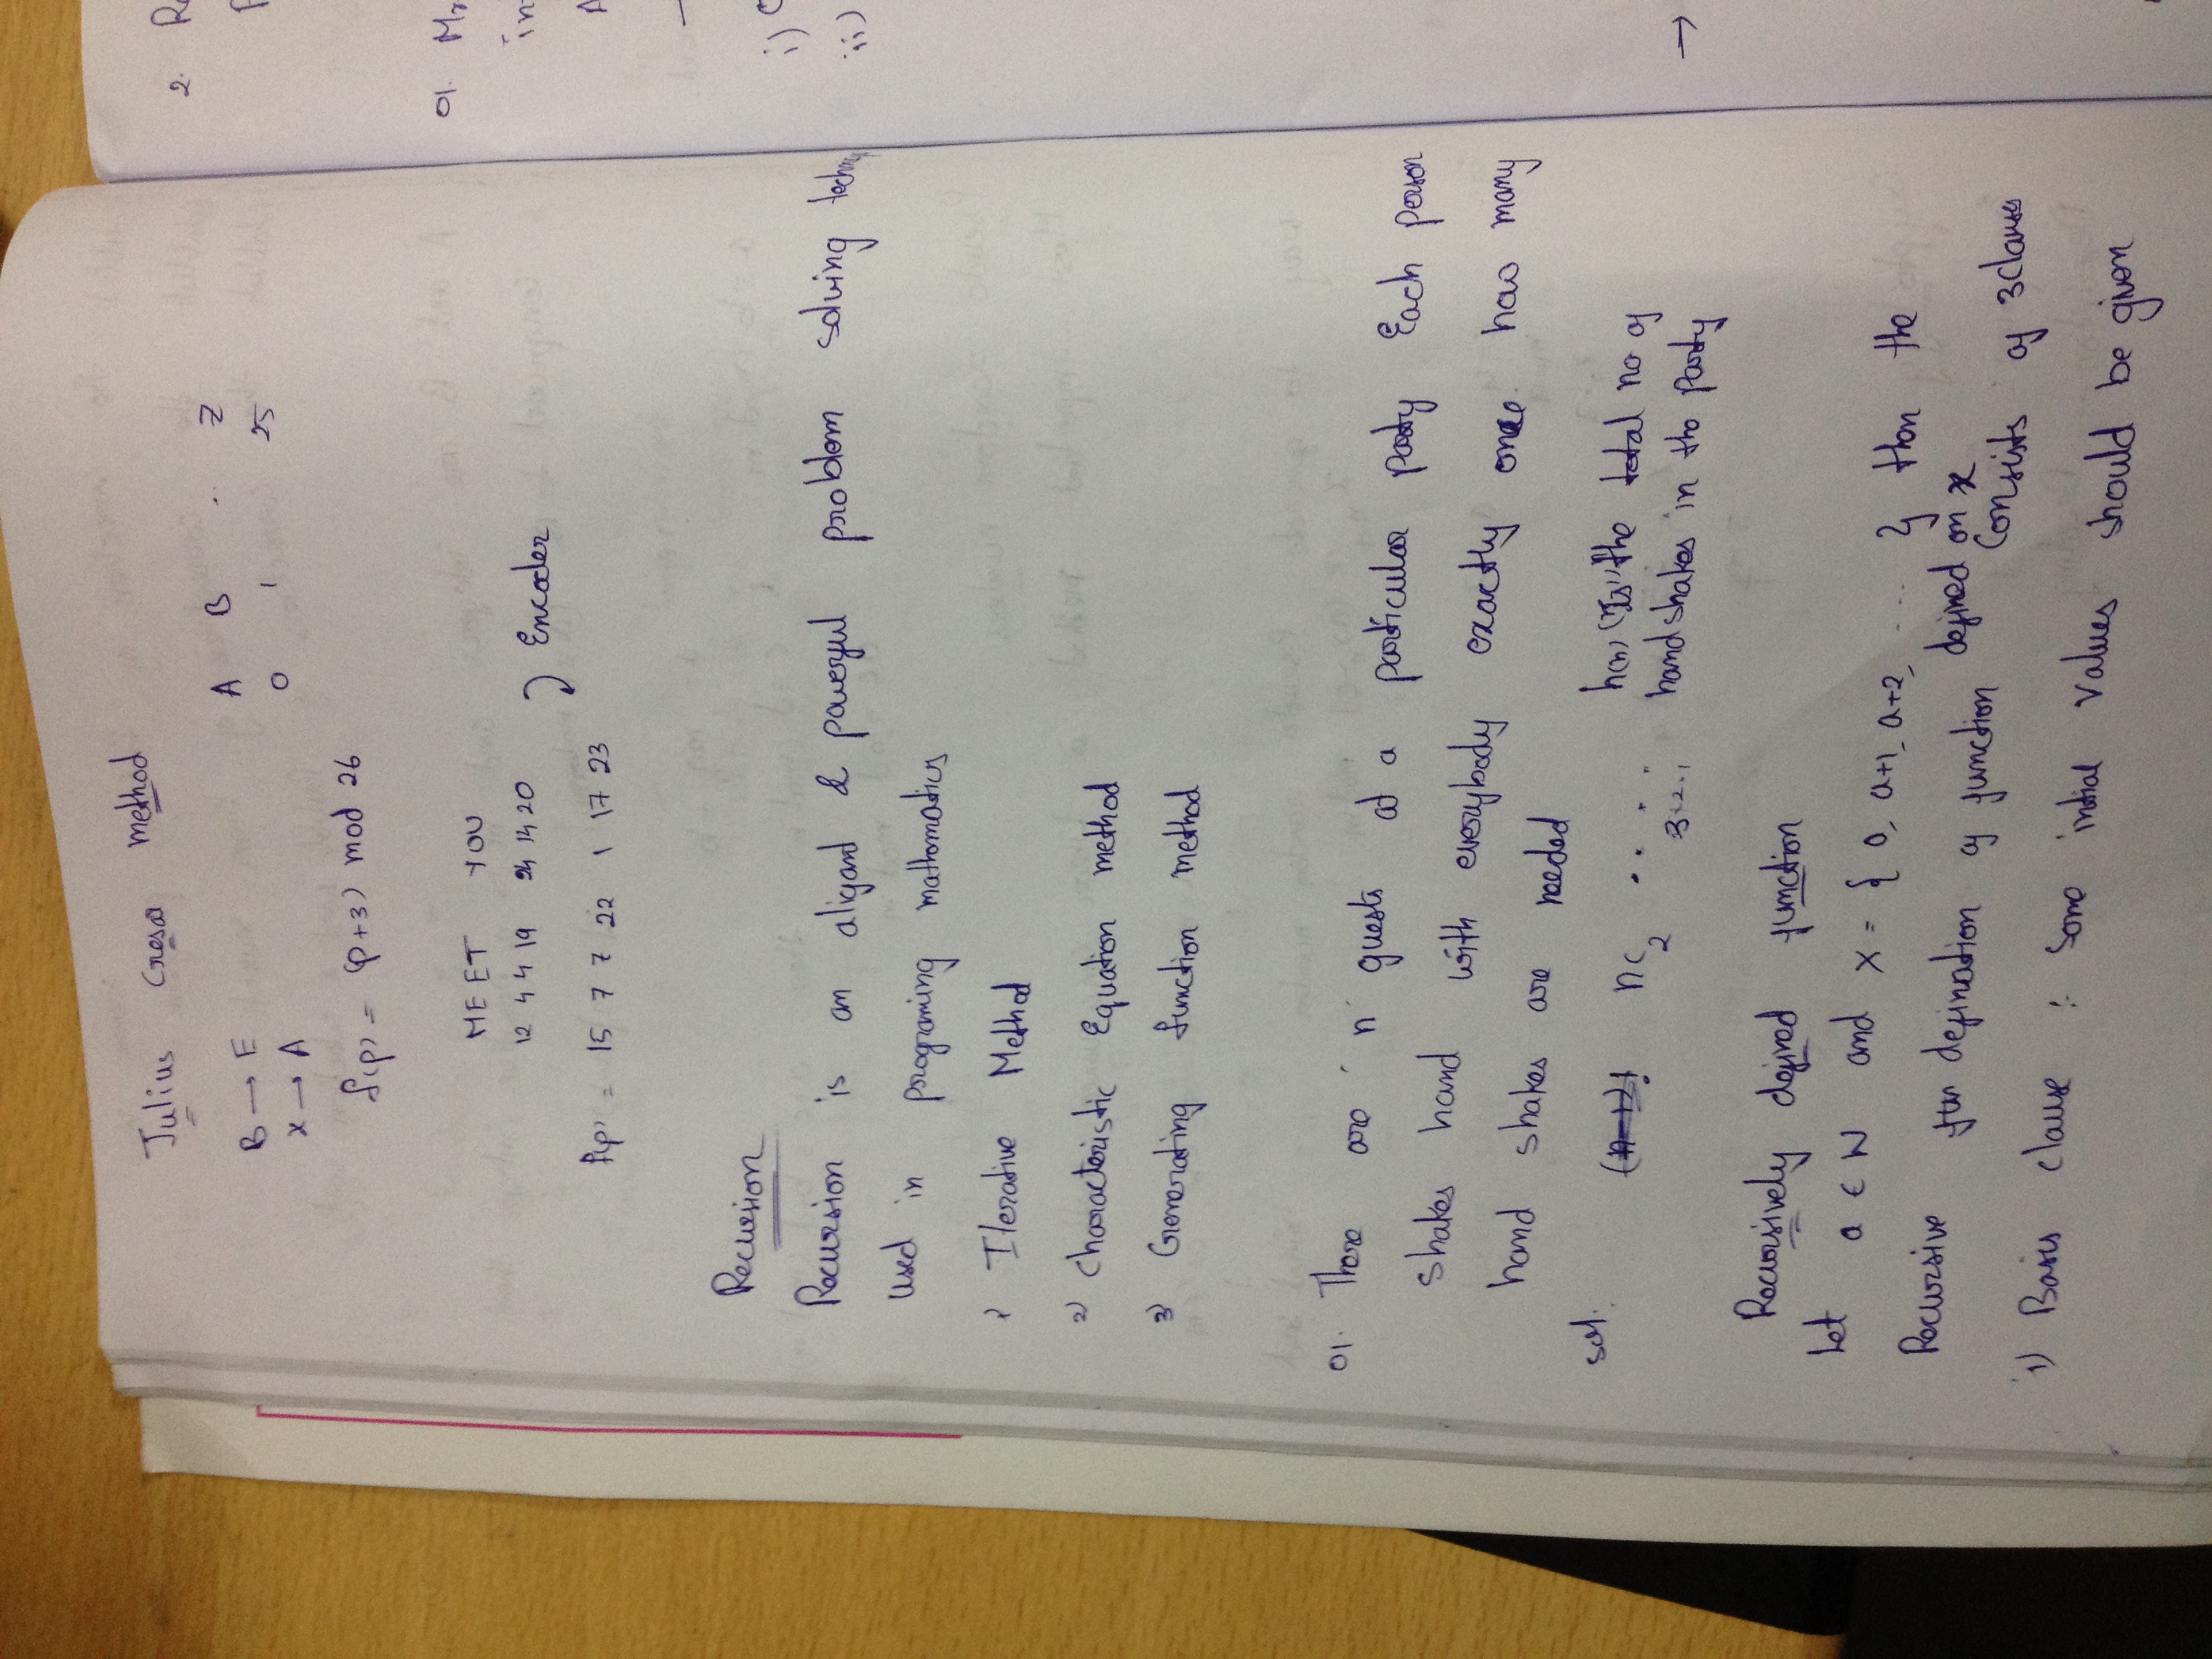 Julius Cresar method
B → E
X → A
A B .. Z
0 1 25
f(p) = (p+3) mod 26
MEET YOU
12 4 4 19 24 14 20
) Encoder
f(p) = 15 7 7 22 1 17 23
Recursion
Recursion is an aligant & powerful problem solving
used in programing mathematics
1) Iterative Method
2) Characteristic Equation method
3) Generating function method
01. There are 'n' guests at a particular party Each person
shakes hand with everybody exactly once. how many
hand shakes are needed
sol. nc2
3+2+1
h(n) the total no of
handshakes in the party
Recursively defined function
let a ∈ N and X = { a, a+1, a+2, .... } then the
Recursive fun defination of function defined on X
Consists of 3 clauses
1) Basis clause : Some initial values should be given
2.
01.
in
i)
ii)
→